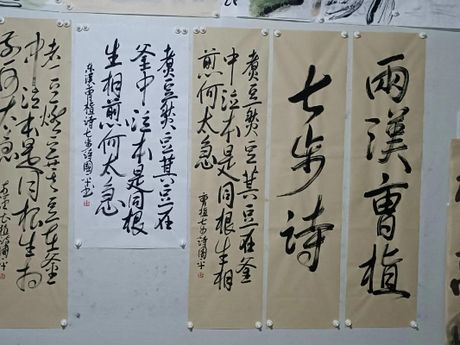 兩漢曹植
七步詩
煮豆燃豆萁豆在釜
中泣本是同根生相
煎何太急
曹植七步詩國平
煮豆燃豆萁豆在
釜中泣本是同根
生相煎何太急
東漢曹植詩七步詩國平書
煮豆燃豆萁豆在釜
中泣本是同根生相
煎何太急